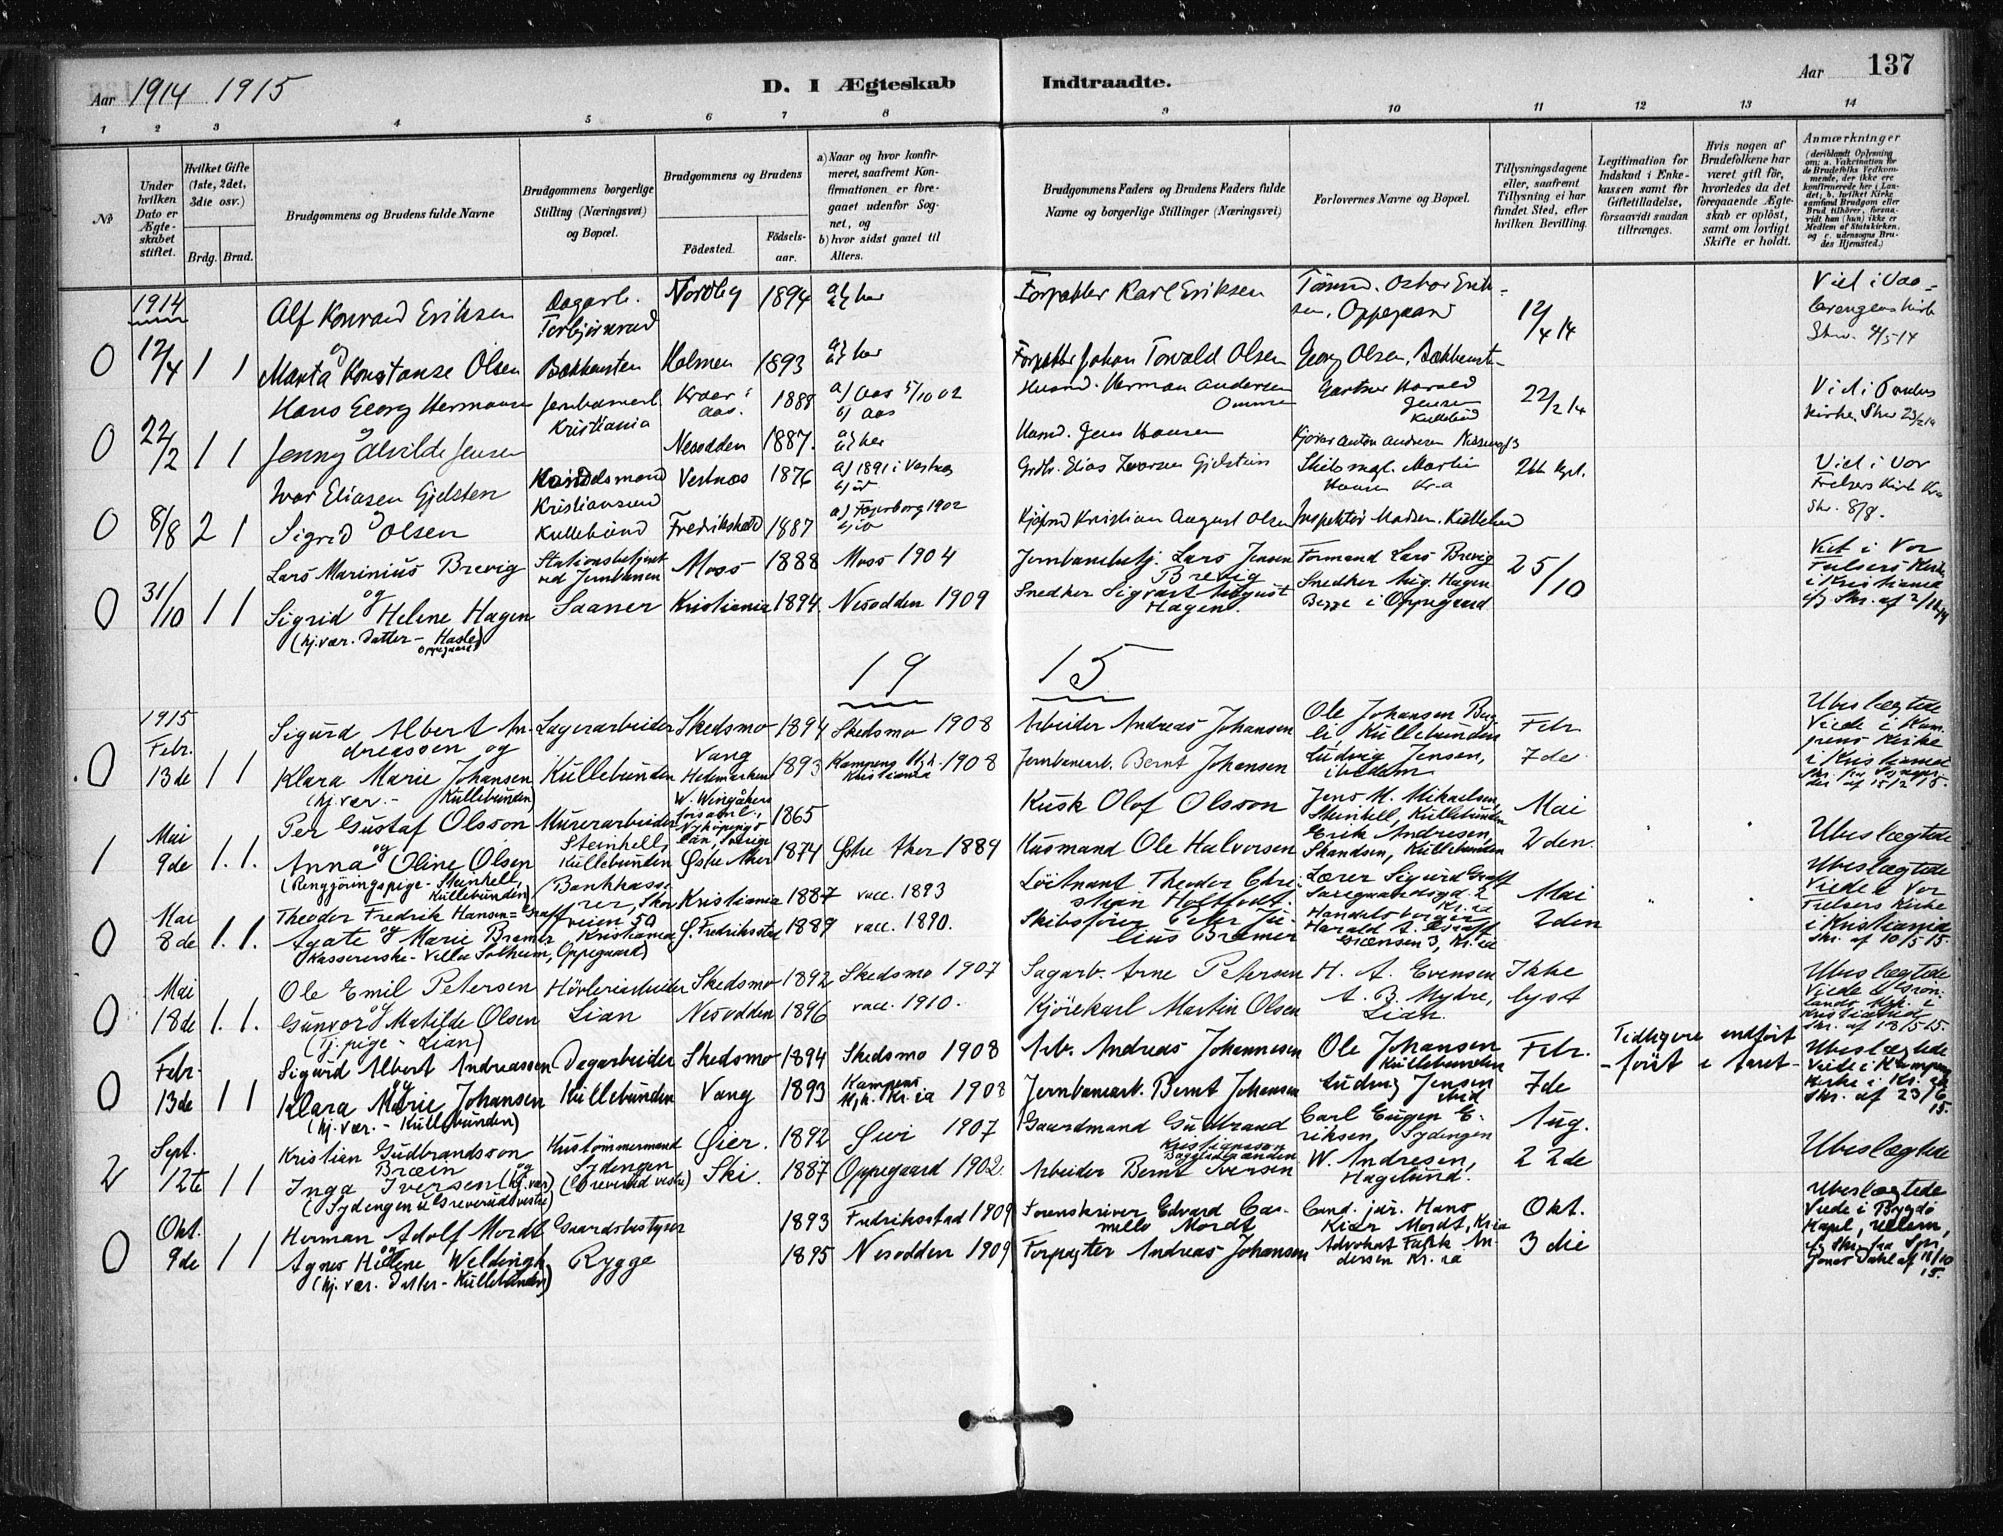 Aar 1914 1915
D. I Ægteskab
Indtraadte.
Aar 137
1 2 3 4 5 6 7 8 9 10 11 12 13 14
№
Under hvilken Dato er Ægteskabet stiftet.
Hvilket Gifte (1ste, 2det, 3die osv.)
Brdg. Brud.
Brudgommens og Brudens fulde Navne
Brudgommens borgerlige Stilling (Næringsvei) og Bopæl.
Brudgommens og Brudens
Födested.
Födselsaar.
a) Naar og hvor konfirmeret, saafremt Konfirmationen er foregaaet udenfor Sognet, og
b) hvor sidst gaaet til Alters.
Brudgommens Faders og Brudens Faders fulde Navne og borgerlige Stillinger (Næringsvei)
Forlovernes Navne og Bopæl.
Tillysningsdagene eller, saafremt Tillysning ei har fundet Sted, efter hvilken Bevilling.
Legitimation for Indskud i Enkekassen samt for Giftetilladelse, forsaavidt saadan tiltrænges.
Hvis nogen af Brudefolkene har været gift för, hvorledes da det foregaaende Ægteskab er oplöst, samt om lovligt Skifte er holdt.
Anmærkninger (deriblandt Oplysning om: a. Vakcination for de Brudefolks Vedkommende, der ikke ere konfirmerede her i Landet; b. hvilket Kirkesamfund Brudgom eller Brud tilhörer, forsaavidt han (hun) ikke er Medlem af Statskirken, og c. udensogns Brudes Hjemsted.)
1914
Alf Konrad Eriksen Dagarb. Torbjørnrud Nordby 1894 a) b) her Forpakter Karl Eriksen Oppegaard 12/4 14
0 12/4 1 1 og Marta Konstanse Olsen Bækkensten Holmen 1893 a) b) her Forpakter Johan Torvald Olsen Georg Olsen, Bækkensten
Hans Georg Hermansen Kristiania Kroer i Aas. 1888 a) Aas 5/10 02 b) Aas Husmd. Herman Andersen Gartner Harald Jensen Kullebund 22/2 14 Viet i
0 22/2 1 1 og Jenny Alvilde Jensen Nesodden 1887. a) b) her Husmd. Jens Hansen
Ivar Eliasen Gjelsten Kristiansund Vestnæs 1876 a) 1891 i Vestnæs Grdbr. Elias Iversen Gjelstein Martin Hansen Kr.a Viet i Vor Frelsers Kirke Kra
0 8/8 2 1 og Sigrid Olsen Kullebund Fredrikshald 1887 a) Fagerborg 1902 Kristian August Olsen Inspektør Madsen. Kullebund Skr. 8/8.
Lars Marinius Brevig Stationsbetjent ved Jernbanen Moss 1888 Moss 1904 Jernbanebetj. Lars Jensen Brevig Formand Lars Brevig 25/10 Viet i Vor Frelsers Kirke
0 31/10 1 1 og Sigrid Helene Hagen Saaner Kristiania 1894 Nesodden 1909 Snedker Sigvart August Hagen Snedker Sig. Hagen Begge i Oppegaard i Kristiania
(hj.vær. Datter – Hasle, Oppegaard)
19 15
1915
Febr. Sigurd Albert Andreassen og Lagerarbeider Skedsmo 1894 Skedsmo 1908 Arbeider Andreas Johansen Ole Johansen Kullebunden Febr Ubeslægtede Viede i Kampens Kirke
0 13de 1 1 Klara Marie Johansen Kullebunden Vang Hedmarken 1893 Kampens Mgh. Kristiania 1908 Jernbanearb. Bernt Johansen Ludvig Jensen, ibidem 7de i Kristiania
(hj.vær. – Kullebunden)
Mai Per Gustaf Olsson Murerarbeider Nyköpings län, Sverige 1865 Kusk Olof Olsson Jens M. Mikaelsen, Steinhell, Kullebunden Mai
1 9de 1. 1. og Anna Oline Olsen Steinhell, Kullebunden Østre Aker 1874 Østre Aker 1889 Husmand Ole Halvorsen Erik Andresen, Skandsen, Kullebunden 2den. Ubeslægtede
(Rengjöringspige – Steinhell, Kullebunden)
Mai Theodor Fredrik Hansen Graff Kristiania 1887 vacc. 1893 Löitnant Theodor Christian Lærer Sigurd Graff Mai Ubeslægtede Viede i Vor Frelsers Kirke
0 8de 1. 1. og Agate Marie Bræmer Kristiania G. Fredriksstad 1889 vacc. 1890. Skibsförer Peter Julius Bræmer Harald A. Graff Grænsen 3, Kr.ia 2den i Kristiania Skr. af 10/5 15.
(Kassererske – Villa Solheim, Oppegaard)
Mai Ole Emil Petersen Hövleriarbeider Skedsmo 1892 Skedsmo 1907 Sagarb. Arne Petersen H. A. Evensen Ikke Ubeslægtede
0 18de 1. 1. og Gunvor Matilde Olsen Lian Nesodden 1896 vacc. 1910. Kjörekarl Martin Olsen A. B. Myhre, Lian. lyst Skr. af 18/5 15.
(Tj. pige – Lian)
Febr. Sigurd Albert Andreassen Dagarbeider Skedsmo 1894 Skedsmo 1908 Arb. Andreas Johannesen Ole Johansen Kullebunden Febr. Tidligere indfört – fört i Aaret – Ubeslægtede
0 13de 1 1 og Klara Marie Johansen Kullebunden Vang 1893 Kampens Mgh. Kr.ia 1908 Jernbanearb. Bernt Johansen Ludvig Jensen ibid 7de Skr. af 23/6 15.
(hj.vær. – Kullebunden)
Sept. Kristian Gudbrandsson Bræin Hustömmermand Øier. 1892 1907 Gaardmand Gudbrand Kristiansson Carl Eugen Eriksen, Sydengen Aug. Ubeslægtede
2 12te 1 1 og Inga Iversen (hj.vær) Sydengen (Greverud vestre) Ski. 1887 Oppegaard 1902. Arbeider Bernt Iversen W. Andresen, Hagelund. 22de
(Sydengen u. Greverud vestre)
Okt. Herman Adolf Mordt Gaardsbestyrer 1893 Fredriksstad 1909 Sorenskriver Edvard Camillo Mordt Cand. jur. Hans Kiær Mordt, Kr.ia Okt. Ubeslægtede Viede i Bygdö Kapel, Ullern,
0 9de 1 1 og Agnes Helene Weldingh Rygge 1895 Nesodden 1909 Forpagter Andreas Johansen Advokat Falck Andersen Kr.ia 3die
(hj. vær. Datter – Kullebunden)